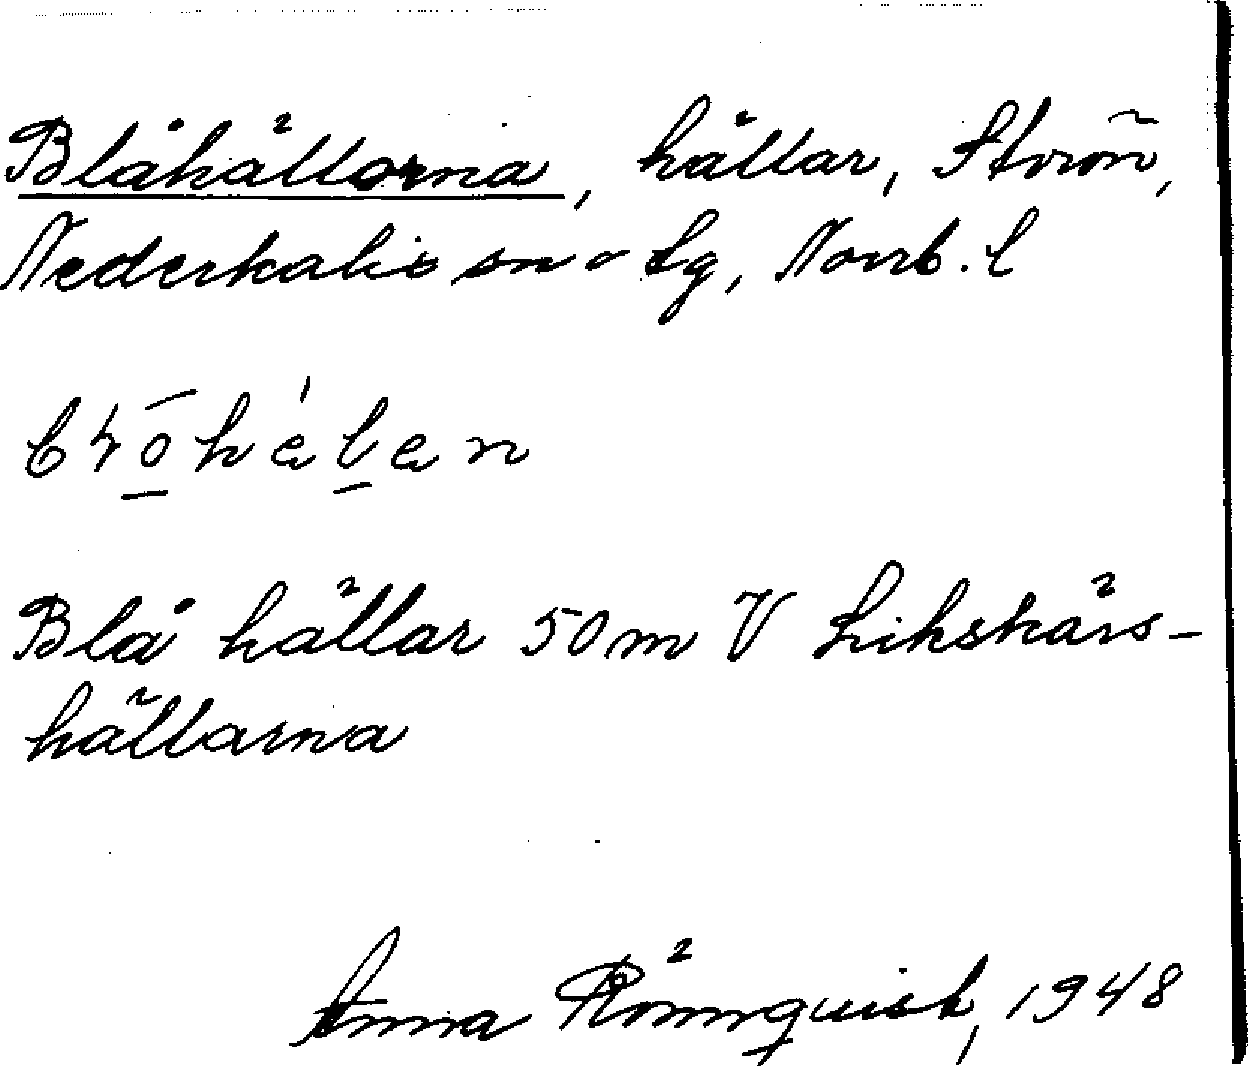 Blåhällorna, hällar, Storön,
Nederkalix sn o tg, Norrb. l
Blå hällar 50 m V Likskärs-
hällarna
Anna Rönnquist, 1948